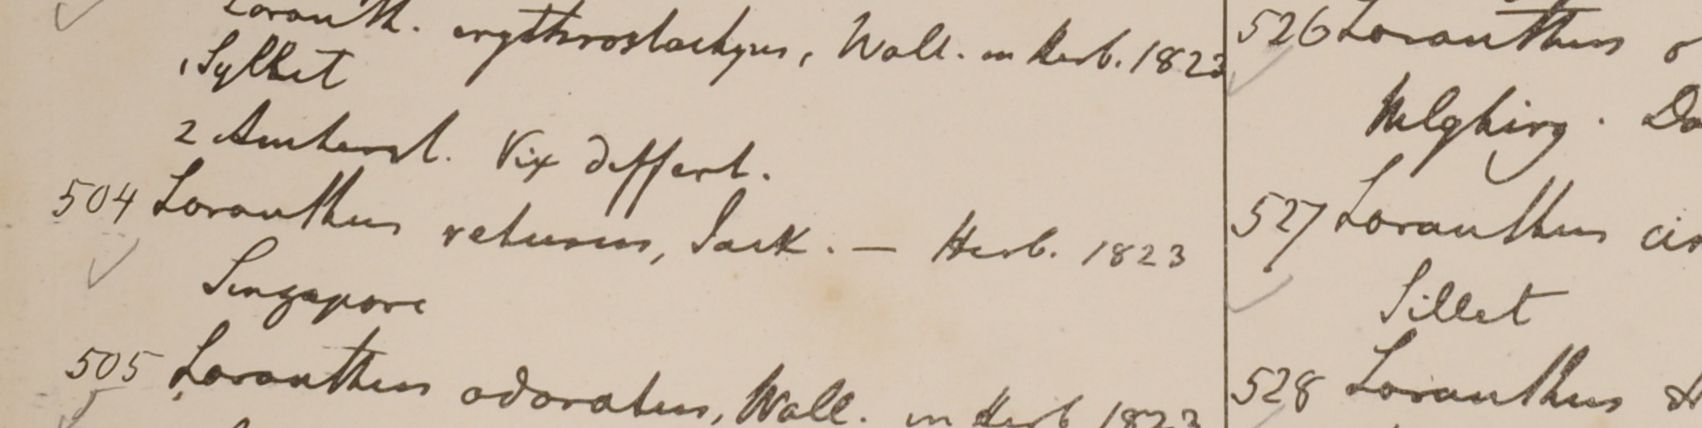 Loranth. erythrostachyus, Wall. in Herb. 1823
Sylhet
2 Amherst. Vix differt.
504 Loranthus retusus, Jack. — Herb. 1823
Singapore
505 Loranthus odoratus, Wall. in Herb 1823
526 Loranthus
Nelghirry. Do
527 Loranthus cin
Sillet
528 Loranthus